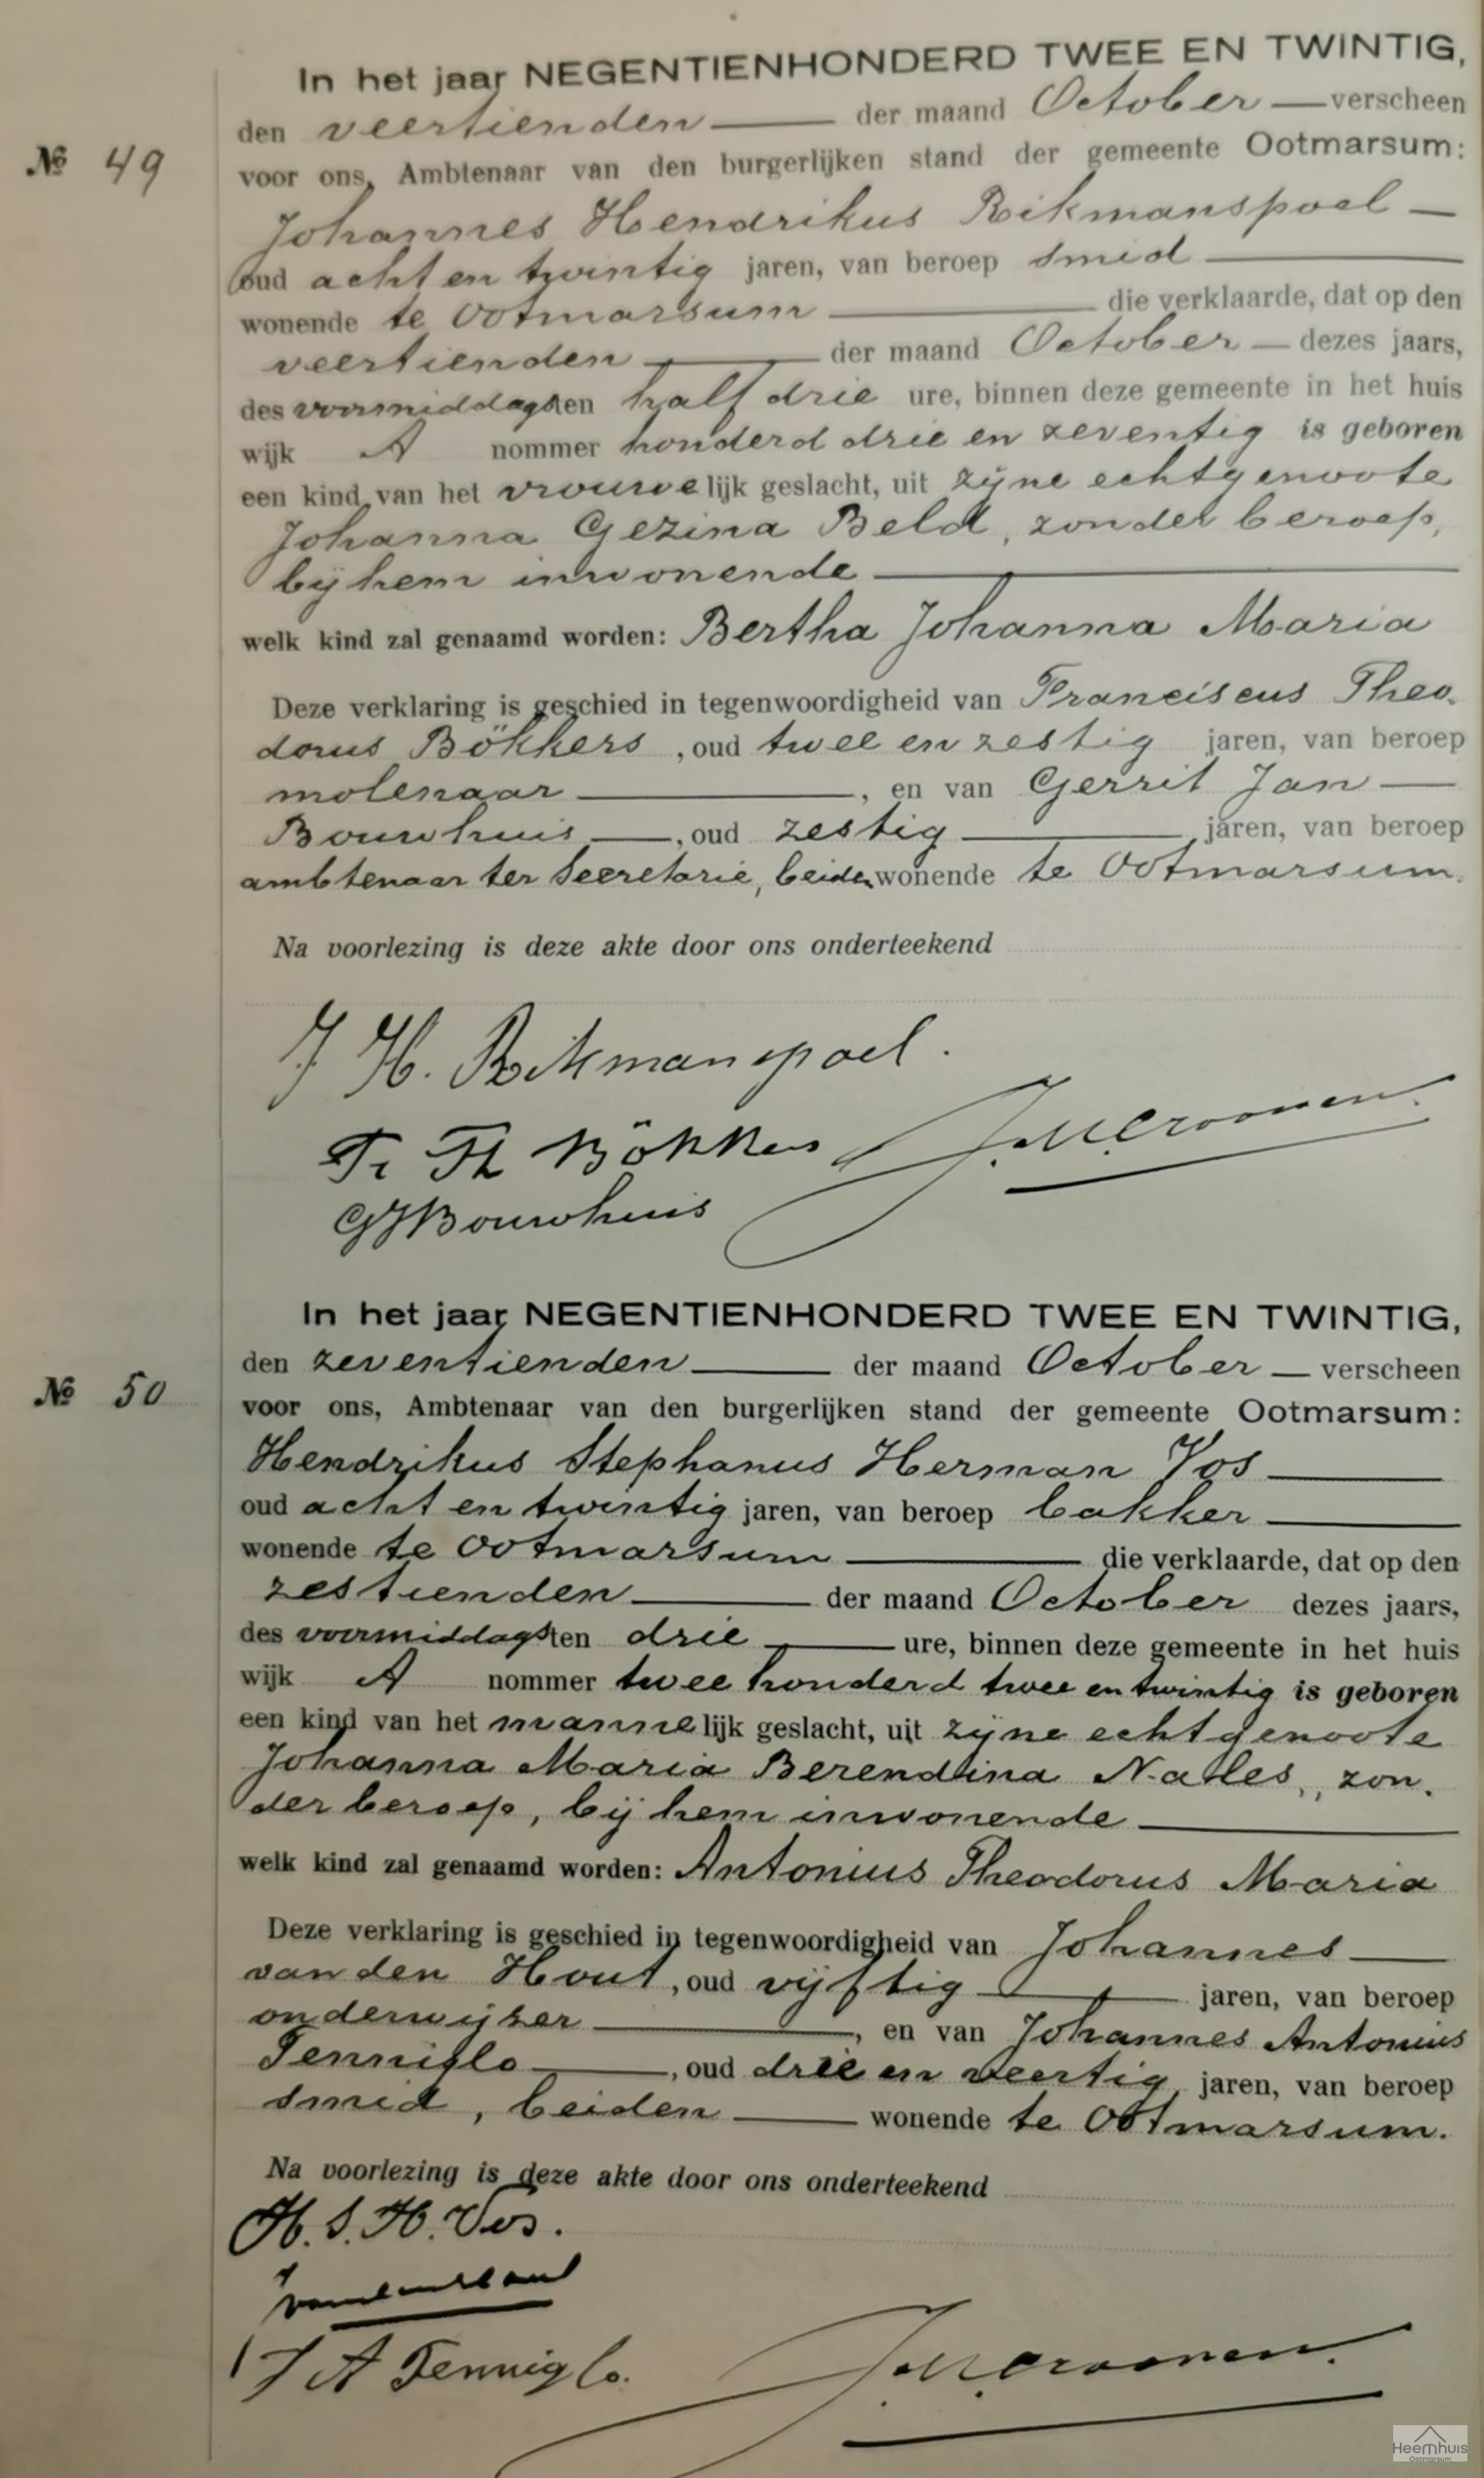 In het jaar NEGENTIENHONDERD TWEE EN TWINTIG,
den veertienden der maand October verscheen
№ 49
voor ons, Ambtenaar van den burgerlijken stand der gemeente Ootmarsum:
Johannes Hendrikus Rikmanspoel
oud acht en twintig jaren, van beroep smid
wonende te Ootmarsum die verklaarde, dat op den
veertienden der maand October dezes jaars,
des voormiddagsten half drie ure, binnen deze gemeente in het huis
wijk A nommer honderd drie en zeventig is geboren
een kind van het vrouwelijk geslacht, uit zijne echtgenoote
Johanna Gezina Beld, zonder beroep,
bij hem inwonende
welk kind zal genaamd worden: Bertha Johanna Maria
Deze verklaring is geschied in tegenwoordigheid van Franciscus Theo-
dorus Bökkers, oud twee en zestig jaren, van beroep
molenaar, en van Gerrit Jan
Bouwhuis, oud zestig jaren, van beroep
ambtenaar ter Secretarie, beiden wonende te Ootmarsum.
Na voorlezing is deze akte door ons onderteekend
J H. Rikmanspoel.
Fr Th Bökkers
GJBouwhuis
In het jaar NEGENTIENHONDERD TWEE EN TWINTIG,
den zeventienden der maand October verscheen
№ 50
voor ons, Ambtenaar van den burgerlijken stand der gemeente Ootmarsum:
Hendrikus Stephanus Herman Vos
oud acht en twintig jaren, van beroep bakker
wonende te Ootmarsum die verklaarde, dat op den
zestienden der maand October dezes jaars,
des voormiddagsten drie ure, binnen deze gemeente in het huis
wijk A nommer twee honderd twee en twintig is geboren
een kind van het mannelijk geslacht, uit zijne echtgenoote
Johanna Maria Berendina, zon-
der beroep, bij hem inwonende
welk kind zal genaamd worden: Antonius Theodorus Maria
Deze verklaring is geschied in tegenwoordigheid van Johannes
van den Hout, oud vijftig jaren, van beroep
onderwijzer, en van Johannes Antonius
Tenniglo, oud drie en veertig, jaren, van beroep
smid, beiden wonende te Ootmarsum.
Na voorlezing is deze akte door ons onderteekend
H. S. H. Vos.
J A Tenniglo.
Heemhuis
Ootmarsum